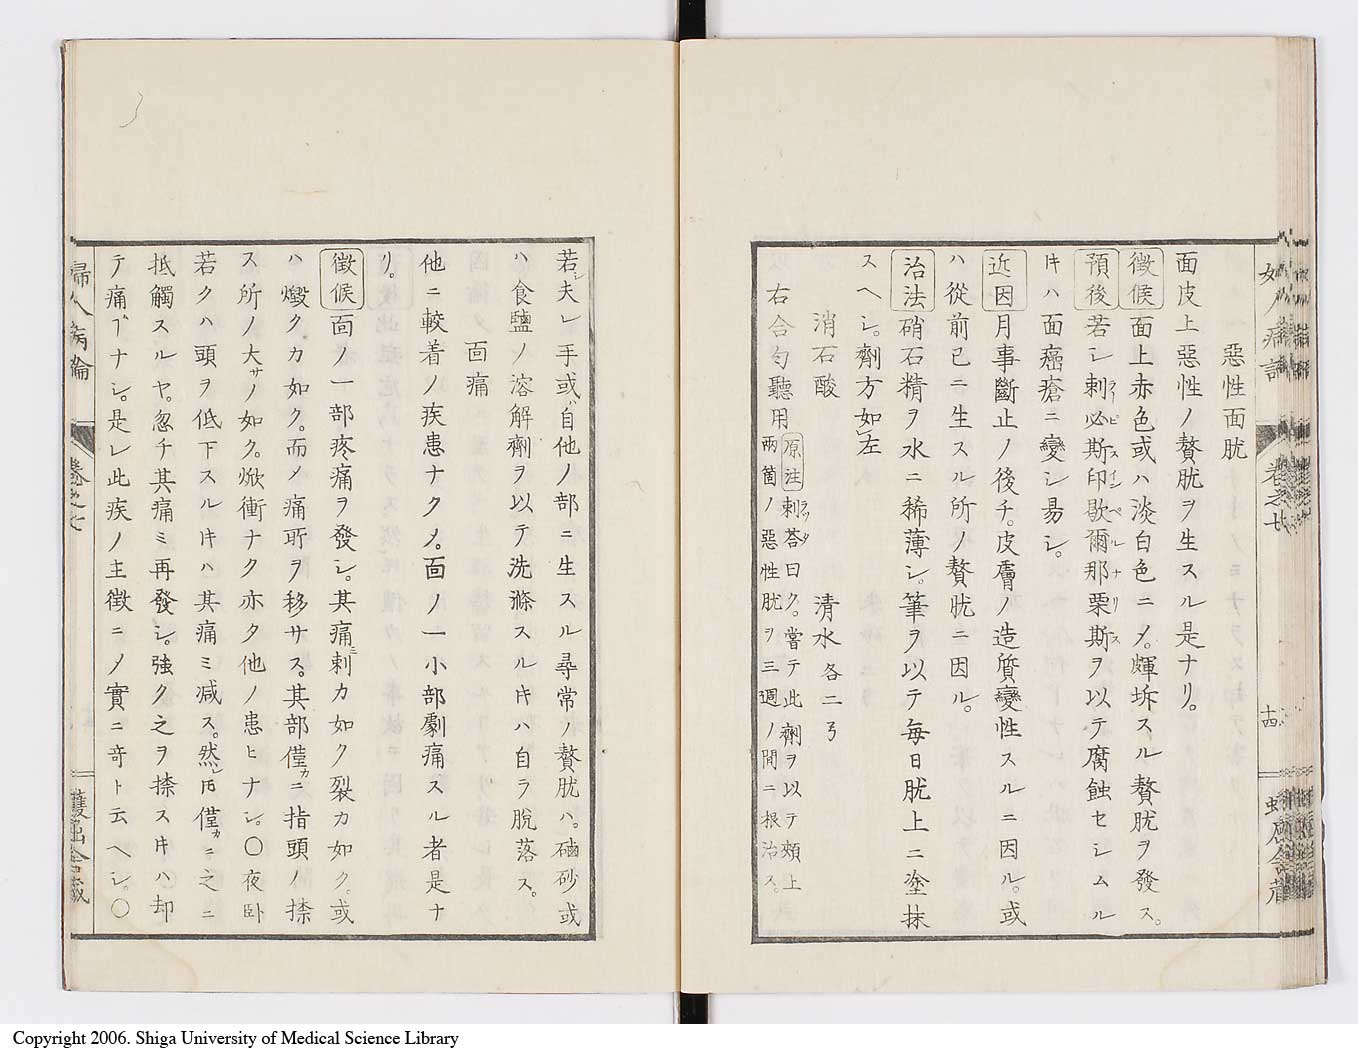 惡性面肬
面皮上惡性ノ贅肬ヲ生スル是ナリ。
徴候 面上赤色或ハ淡白色ニ〆。皹坼スル贅肬ヲ發ス。
預後 若シ刺必斯印歇爾那栗斯ヲ以テ腐蝕セシムル
ラーピスインヘルナリス
キハ面癌瘡ニ變シ易シ。
近因 月事斷止ノ後チ。皮膚ノ造質變性スルニ因ル。或
ハ從前已ニ生スル所ノ贅肬ニ因ル。
治法 硝石精ヲ水ニ稀薄シ。筆ヲ以テ毎日肬上ニ塗抹
スヘシ。劑方如左
消石酸 清水 各二弓
右合勻聽用 原注 剌荅曰ク。嘗テ此劑ヲ以テ頬上
兩箇ノ惡性肬ヲ三週ノ間ニ根治ス。
婦人病論 卷之七 十四 蠖屈舍藏
若シ夫レ手或ハ自他ノ部ニ生スル尋常ノ贅肬ハ。磠砂或
ハ食鹽ノ溶解劑ヲ以テ洗滌スルキハ自ラ脫落ス。
面痛
他ニ較着ノ疾患ナク〆。面ノ一小部劇痛スル者是ナ
リ。
徴候 面ノ一部疼痛ヲ發シ。其痛ミ刺カ如ク裂カ如ク。或
ハ燬クカ如ク。而〆痛所ヲ移サス。其部僅カニ指頭ノ捺
ス所ノ大サノ如ク。焮衝ナク亦タ他ノ患ヒナシ。〇夜卧
若クハ頭ヲ低下スルキハ其痛ミ減ス。然レ𪜈僅カニ之ニ
抵觸スルヤ。忽チ其痛ミ再發シ。強ク之ヲ捺スキハ却
テ痛ヿナシ。是レ此疾ノ主徴ニ〆實ニ奇ト云ヘシ。〇
婦人病論 卷之七
Copyright 2006. Shiga University of Medical Science Library